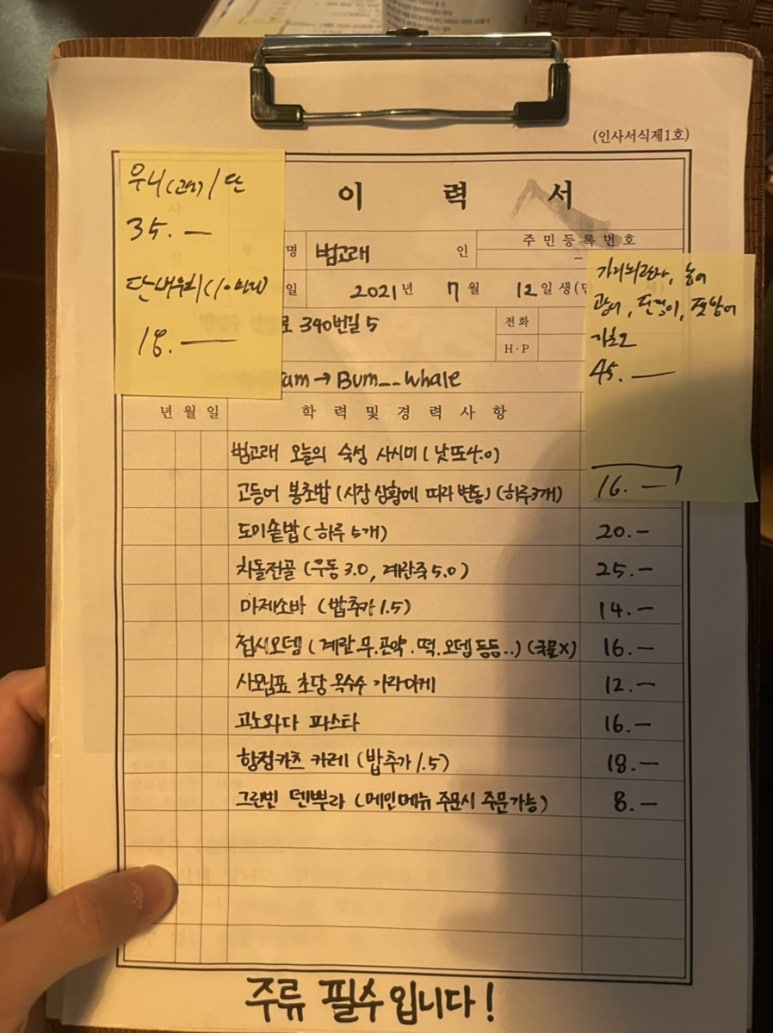 (인사서식제1호)
이 력 서
우니 / 단
35.—
단새우
18.—
명 범고래 인
주민등록번호
일 2021년 7월 12일생
로 390번길 5
전화
H·P
am → Bum__whale
가리비관자, 농어
광어, 도미
45.—
년 월 일 학 력 및 경 력 사 항
범고래 오늘의 숙성 사시미 (낫또4.0)
고등어 봉초밥 (시장 상황에 따라 변동) (하루3개) 16.—
도미솥밥 (하루 5개) 20.—
차돌전골 (우동 3.0, 계란죽 5.0) 25.—
마제소바 (밥추가 1.5) 14.—
접시오뎅 (계란.무.곤약.떡.오뎅 등등..) (국물X) 16.—
사모님표 초당 옥수수 가라아게 12.—
고노와다 파스타 16.—
항정카츠 카레 (밥추가 1.5) 18.—
그린빈 덴뿌라 (메인메뉴 주문시 주문가능) 8.—
주류 필수입니다!